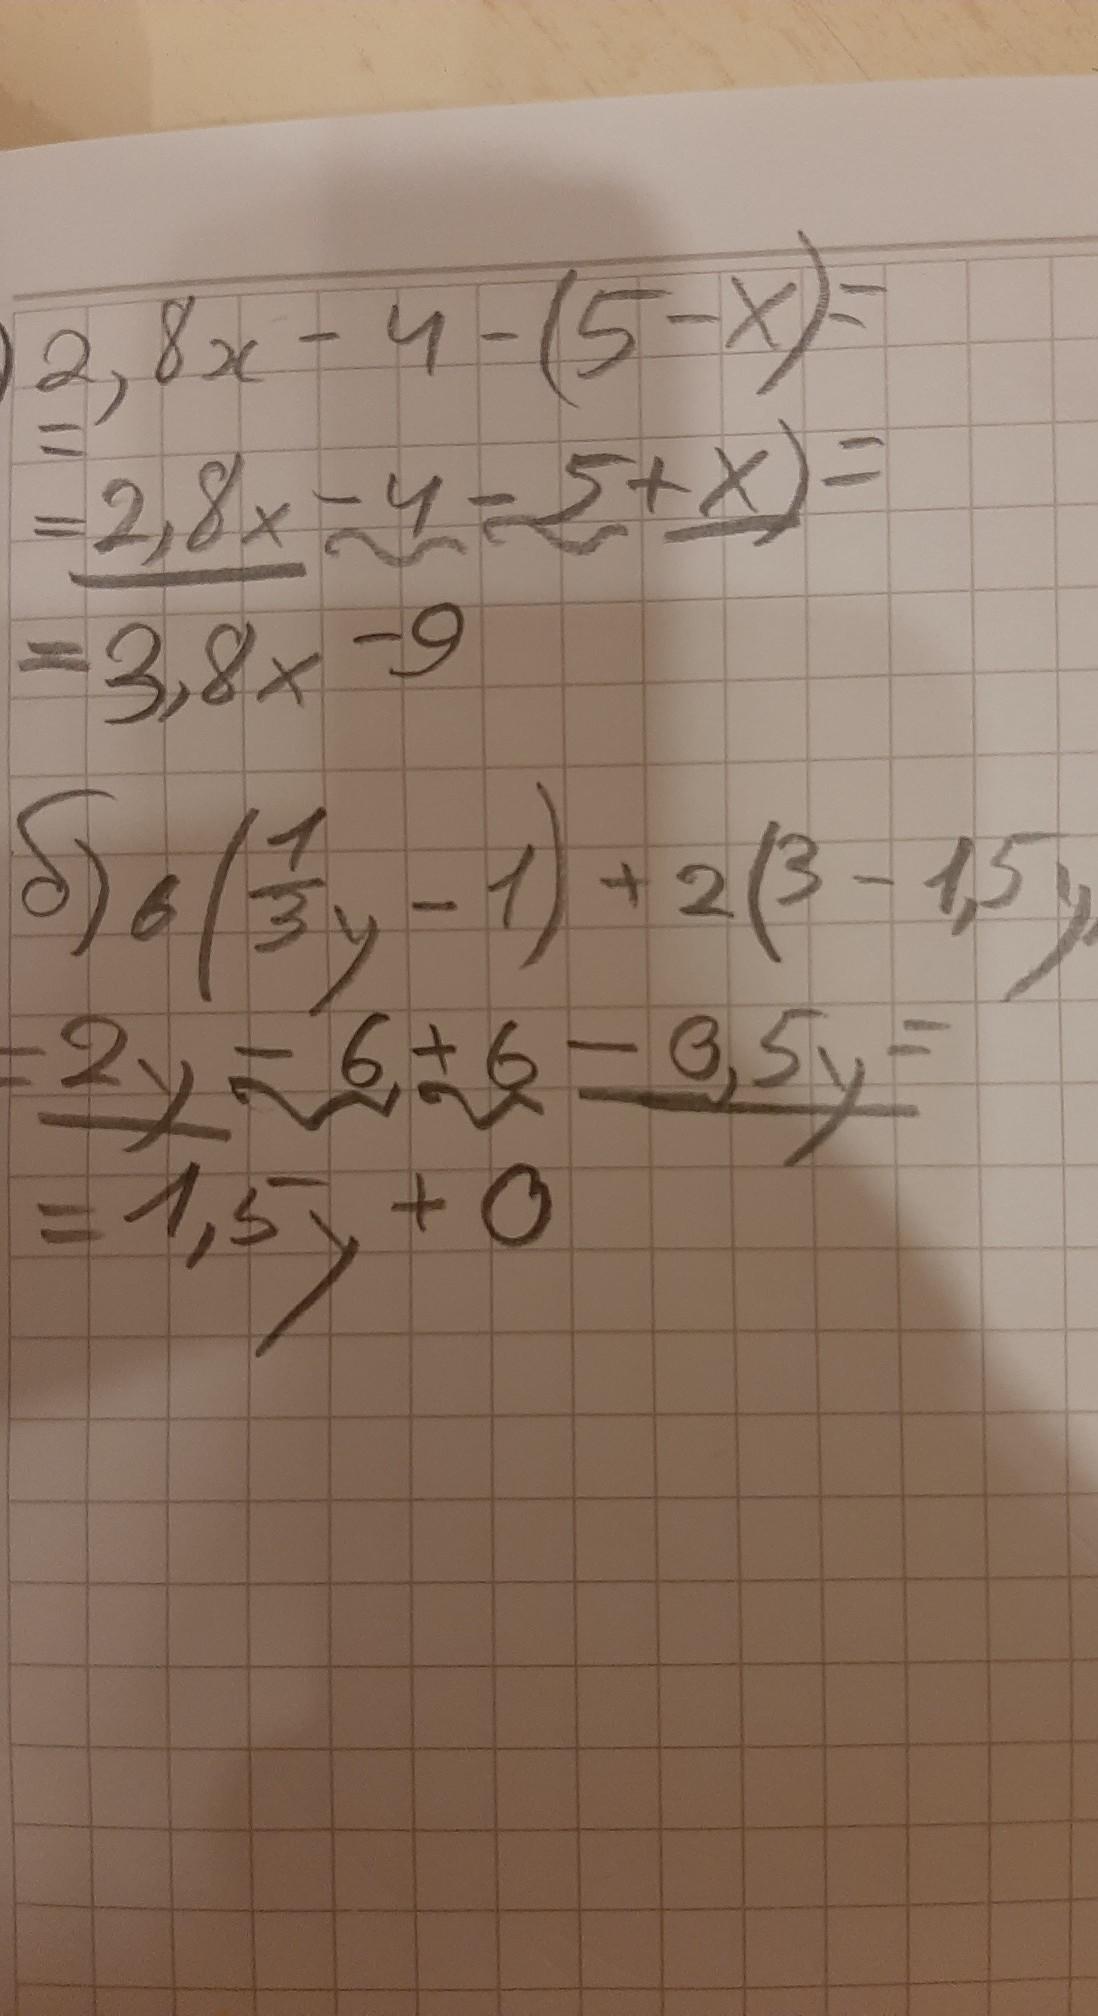 ) 2,8x - 4 - (5 - x) =
=
= 2,8x - 4 - 5 + x) =
= 3,8x - 9
б) 6 (1/3 y - 1) + 2 (3 - 1,5y
= 2y - 6 + 6 - 0,5y =
= 1,5y + 0